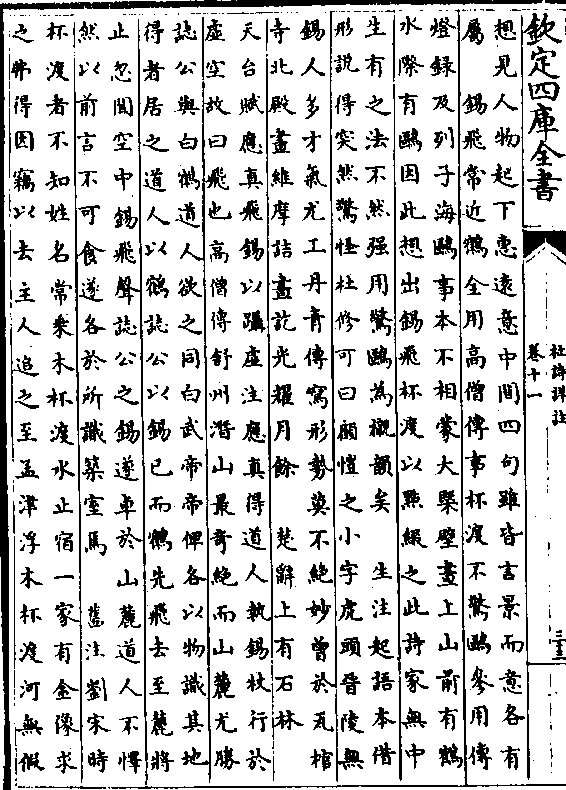 欽定四庫全書
杜詩詳註
卷十一
三三
想見人物起下惠遠意中間四句雖皆言景而意各有
屬　錫飛常近鶴全用高僧傳事杯渡不驚鷗參用傳
燈錄及列子海鷗事本不相蒙大槩壁畫上山前有鶴
水際有鷗因此想出錫飛杯渡以點綴之此詩家無中
生有之法不然强用驚鷗為襯韻矣　生注起語本借
形說得突然驚怪杜修可曰顧愷之小字虎頭晉陵無
錫人多才氣尤工丹青傳寫形勢莫不絕妙曾於瓦棺
寺北殿畫維摩詰畫訖光耀月餘　楚辭上有石林
天台賦應真飛錫以躡虛注應真得道人執錫杖行於
虛空故曰飛也高僧傳舒州潛山最奇絕而山麓尤勝
誌公與白鶴道人欲之同白武帝帝俾各以物識其地
得者居之道人以鶴誌公以錫已而鶴先飛去至麓將
止忽聞空中錫飛聲誌公之錫遂卓於山麓道人不懌
然以前言不可食遂各於所識築室焉　舊注劉宋時
杯渡者不知姓名常乗木杯渡水止宿一家有金像求
之弗得因竊以去主人追之至孟津浮木杯渡河無假